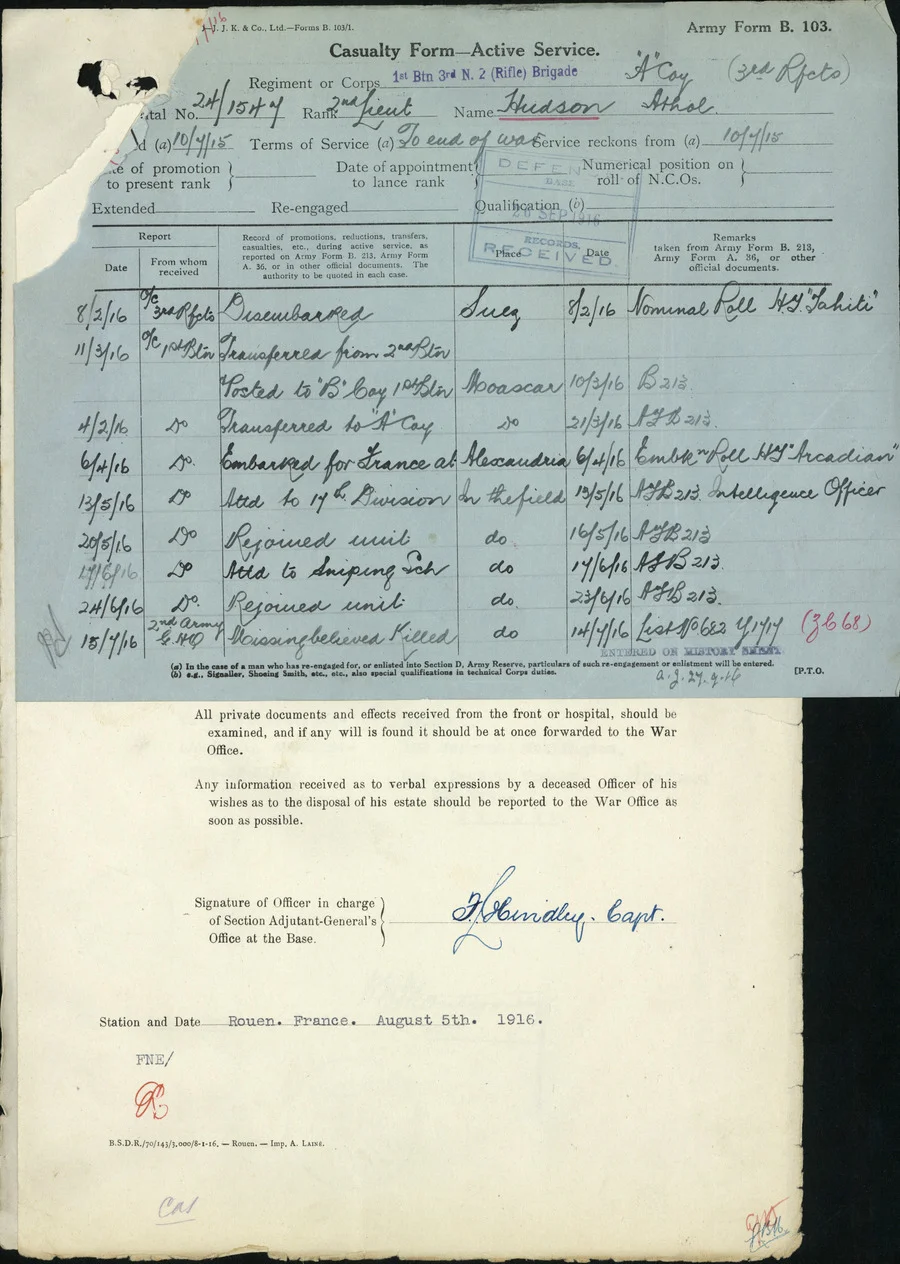 J. J. K. & Co., Ltd.—Forms B. 103/1.
Army Form B. 103.
Casualty Form—Active Service.
Regiment or Corps 1st Btn 3rd N. Z (Rifle) Brigade "A" Coy (3rd Rfcts)
tal No. 24/1547 Rank 2nd Lieut Name Hudson Athol
d (a) 10/7/15 Terms of Service (a) To end of war Service reckons from (a) 10/7/15
te of promotion to present rank } Date of appointment to lance rank } Numerical position on roll of N.C.Os. }
Extended Re-engaged Qualification (b)
DEFEN
BASE
26 SEP 1916
RECORDS.
RECEIVED.
Report
Date
From whom received
Record of promotions, reductions, transfers, casualties, etc., during active service, as reported on Army Form B. 213, Army Form A. 36, or in other official documents. The authority to be quoted in each case.
Place
Date
Remarks taken from Army Form B. 213, Army Form A. 36, or other official documents.
8/2/16 O/c 3rd Rfcts Disembarked Suez 8/2/16 Nominal Roll HT "Tahiti"
11/3/16 O/c 1st Btn Transferred from 2nd Btn
Posted to "B" Coy 1st Btn Moascar 10/3/16 B 213.
4/2/16 Do Transferred to "A" Coy Do 21/3/16 AFB 213.
6/4/16 Do. Embarked for France at Alexandria 6/4/16 Embkn Roll HT "Arcadian"
13/5/16 Do Attd to 17th Division In the field 13/5/16 AFB 213. Intelligence Officer
20/5/16 Do Rejoined unit do. 16/5/16 AFB 213
17/6/16 Do Attd to Sniping Sch do 17/6/16 AFB 213.
24/6/16 Do. Rejoined unit do. 23/6/16 AFB 213.
15/7/16 2nd Army G.H.Q Missing believed Killed do 14/7/16 List No 682 (3668)
ENTERED ON HISTORY SHEET.
a.g. 27.9.16
(a) In the case of a man who has re-engaged for, or enlisted into Section D, Army Reserve, particulars of such re-engagement or enlistment will be entered.
(b) e.g., Signaller, Shoeing Smith, etc., etc., also special qualifications in technical Corps duties.
[P.T.O.
All private documents and effects received from the front or hospital, should be
examined, and if any will is found it should be at once forwarded to the War
Office.
Any information received as to verbal expressions by a deceased Officer of his
wishes as to the disposal of his estate should be reported to the War Office as
soon as possible.
Signature of Officer in charge
of Section Adjutant-General's
Office at the Base.
F. Hindley. Capt.
Station and Date Rouen. France. August 5th. 1916.
FNE/
B.S.D.R./70/143/3,000/8-1-16. — Rouen. — Imp. A. Lainé.
Cas